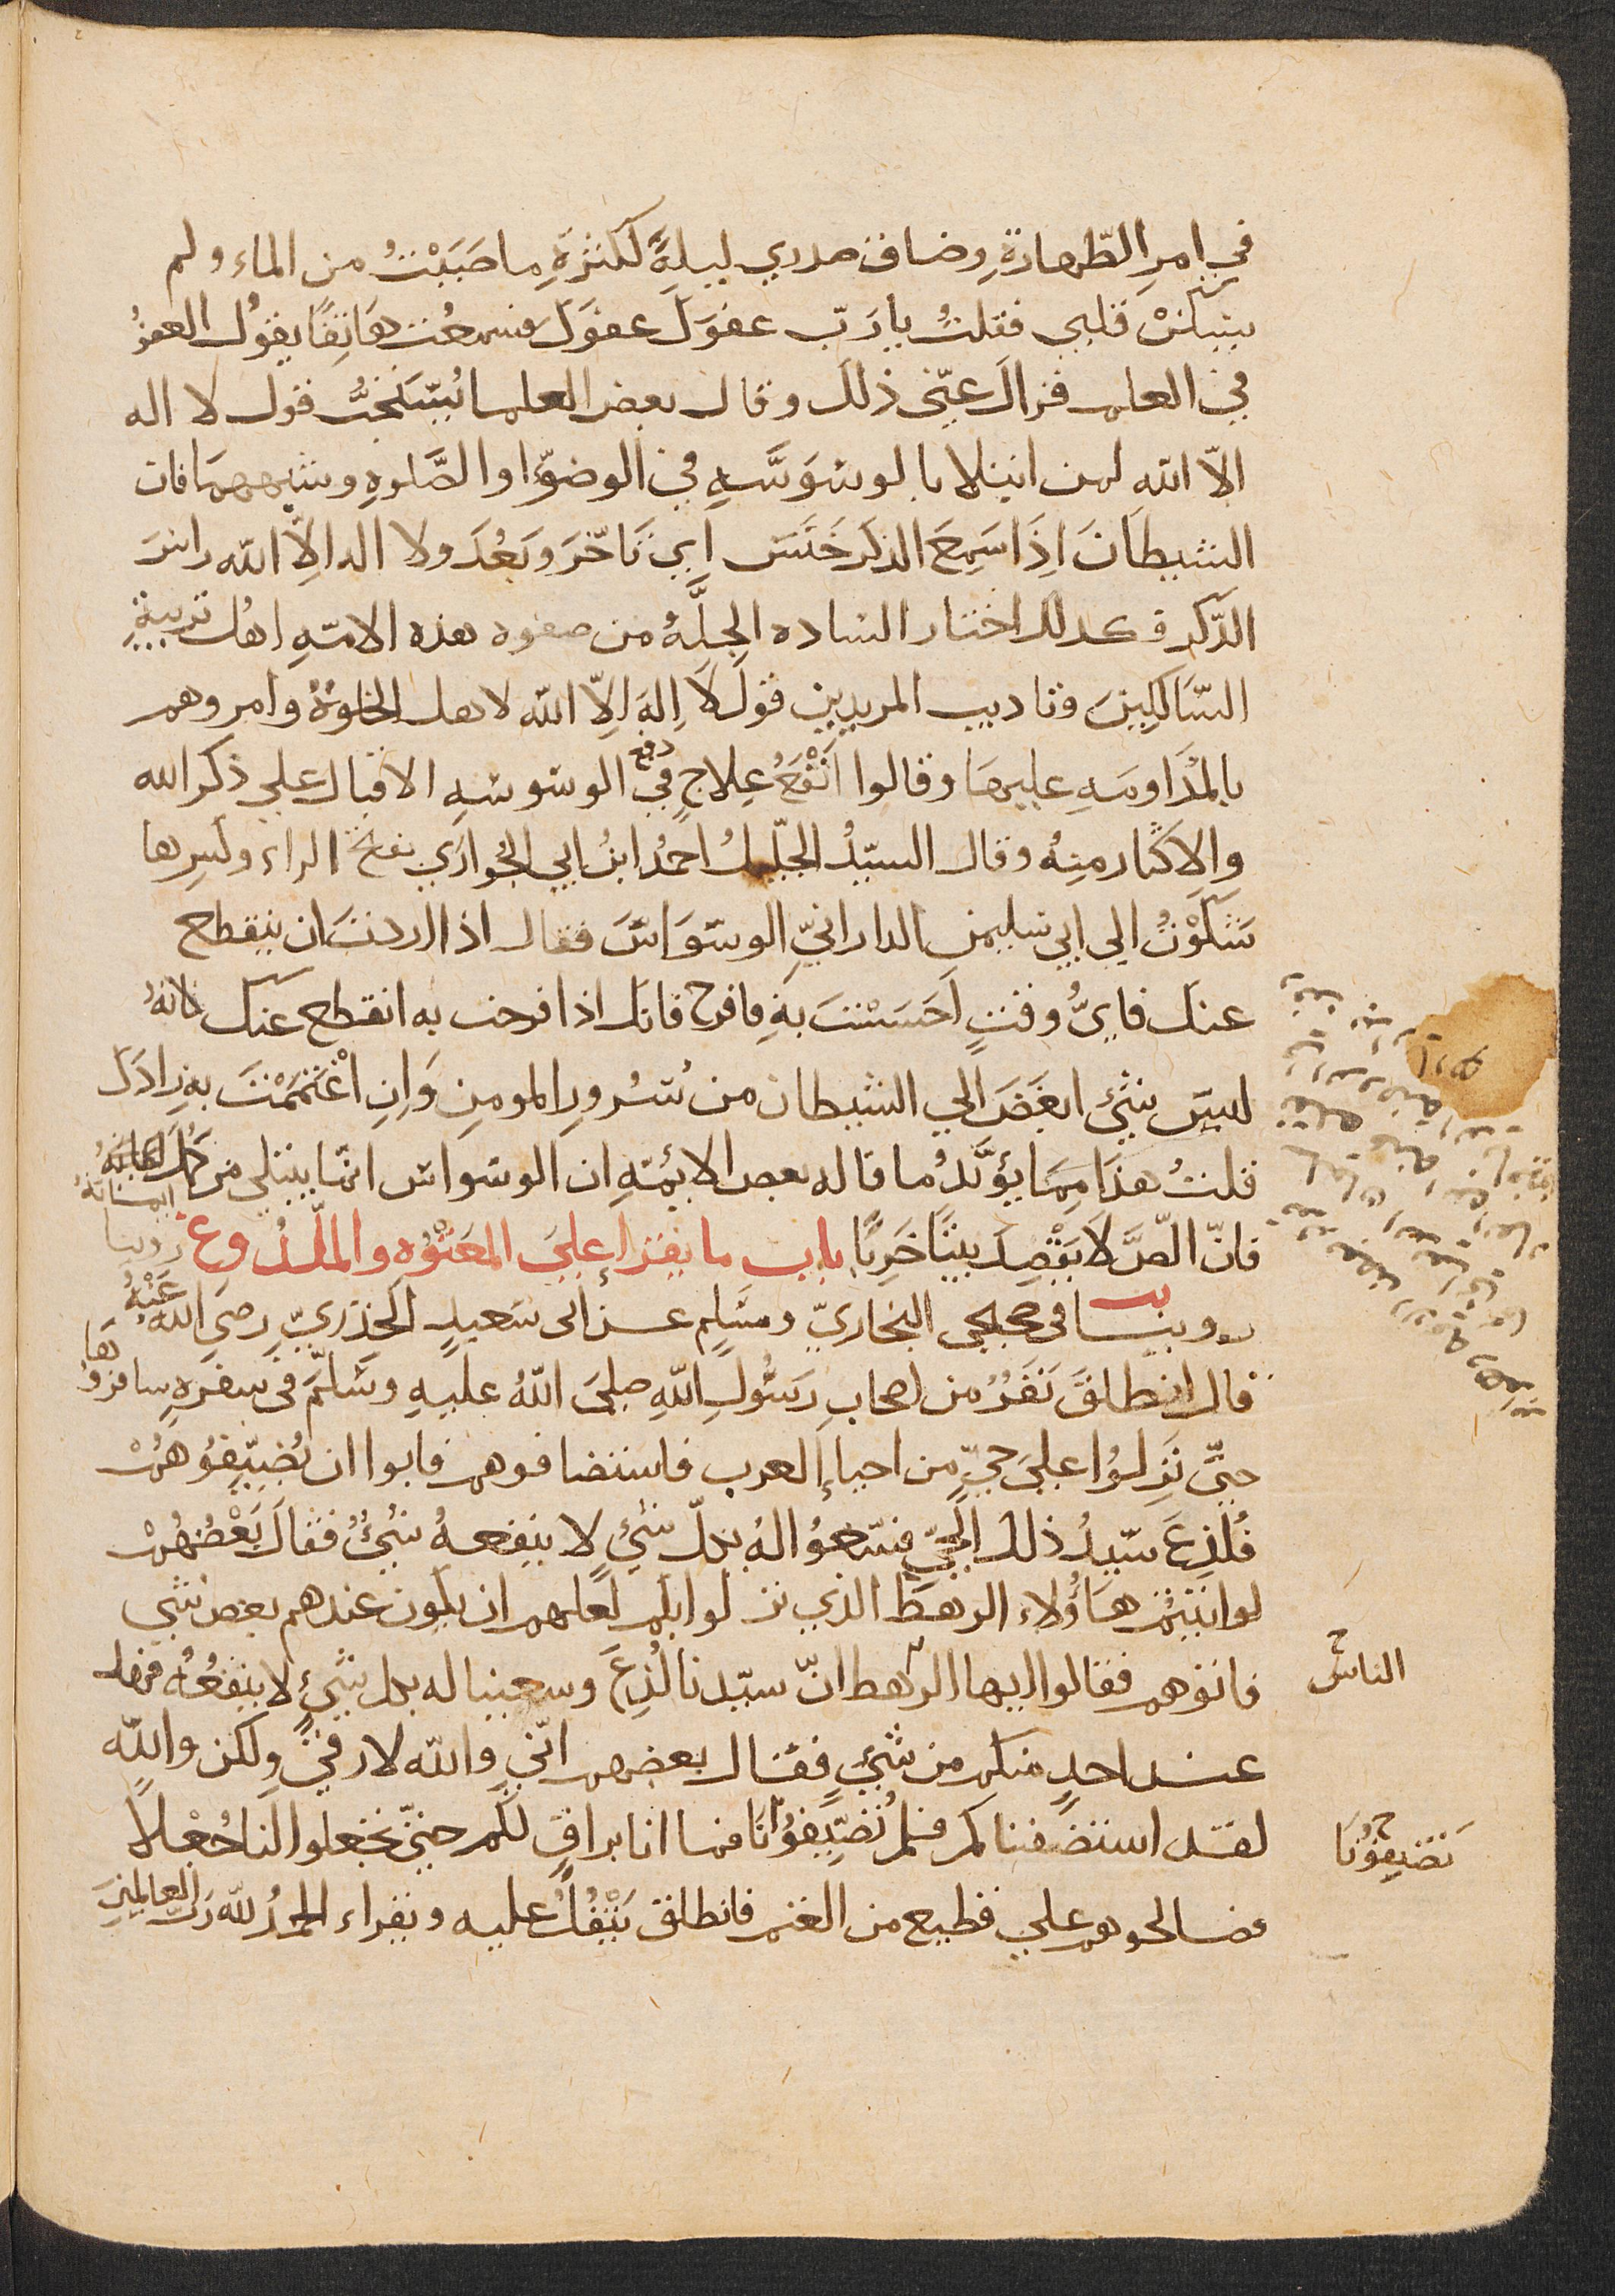 في امرِ الطّهارةِ وضاق صدري ليلةً لكثرةِ ما صَبَبْتُ من الماء ولم
يسكنْ قلبي فقلتُ يا رَبّ عفوَك عفوَك فسمعْت هاتفًا يقولُ العفوُ
في العلم فزالَ عنّي ذلك وقال بعض العلما يُستحَبُّ قول لا اله
الّا الله لمن ابتلا بالوسوَسَهِ في الوضوّ او الصَّلوةِ وشبههمَا فان
الشيطَانَ اِذَا سَمِعَ الذكرَ خَنَسَ اي تَاخّرَ وبَعُدَ ولا اله الّا الله راسُ
الذّكر وكذلك اختار الساده الجِلَّهُ من صفوه هذه الامّهِ اهل تربيةِ
السَّالكِينَ وتاديب المريدين قولَ لَا اِلهَ اِلّا الله لاهل الخلوَةُ وامروهم
بالمدَاومَهِ عليهَا وقالوا اَنْفَعُ عِلاجٍ في دفع الوسوسهِ الاقبال علي ذكر الله
والاِكثار منهُ وقال السيّدُ الجليلُ احمدُ ابنُ ابي الحوارَي بفتح الراء وكسرها
شكَوْتُ الي ابي سليمن الدارانيِّ الوسوَاسَ فقال اذا اردتَ ان ينقطع
عنك فايُّ وقتٍ احَسَسْتَ بهِ فافرح فانك اذا فرحت به انقطع عنك لانهُ
ليس شيْ ابغَضَ الي الشيطان من سُرورِ المومِنِ وَاِنِ اغْتَمَمْتَ بهِ زادَكَ
قلتُ هذَا مِمَا يؤيّدُ ما قاله بعض الايمّهِ ان الوسواس انّما يبتلي من كمل ايمَانهُ
فانّ اللّصَّ لَا يَقْصِدَ بيتًا خَرِبًا باب ما يقرا علَي المَعْتُوه والملْدُوع روينا
روينا في صحيحي البخاريّ ومسَلمٍ عن ابي سَعيدٍ الخدريّ رضي اللهُ عَنْهُ
قال انطلَقَ نَفَرُ من اصحابِ رَسُولِ اللهِ صلي اللهُ عليهِ وسَلّمَ في سفرَهٍ سافروُهَا
حتّي نَزِلُوا علَي حيّ من احياءِ العرب فاستضافوهم فابوا ان يُضيِّفُوهُمْ
فلُدِغَ سَيّدُ ذلك الحَيّ فسَعوُا لهُ بكلّ شئٍ لا ينفعهُ شيْ فقَالَ بَعْضُهُمْ
لو اتيتم هَاؤُلاء الرهطَ الذي نزلوا بكم لعَلهم ان يكون عندهم بعض شي
فاتوهم فقالوا ايها الرهط انّ سيّدنا لُدِغَ وسعينا له بكل شيْءٍ لا ينفعُهُ فهل
عند احدٍ منكم من شيْءٍ فقال بعضهم انّي والله لارقي ولكن والله
لقد استضفناكم فلم تُضَيِّفوُنَا فما انا براقٍ لكم حتّي تجعلوا لنَا جُعْلًا
فصالحوهم علي قطيع من الغنم فانطلق يَتْفُلُ عليه ويقراء الحمدُ لله رَبّ العالمِينَ
الناس
تَضيفوُنَا